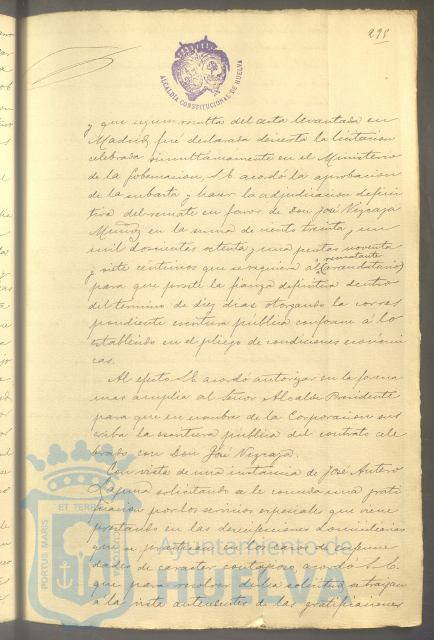 295
ALCALDÍA CONSTITUCIONAL DE HUELVA
y que segun resulta del acta levantada en
Madrid, fué declarada desierta la licitacion
celebrada simultaneamente en el Ministerio
de la Gobernacion, S.E. acordó la aprobacion
de la subasta y hacer la adjudicacion defini-
tiva del remate en favor de Don José Vizcaya
Muñoz en la suma de ciento treinta y un
mil doscientas setenta y una pesetas noventa
y siete céntimos que se requiera al (arrendatario) rematante
para que preste la fianza definitiva dentro
del termino de diez dias otorgando la corres
pondiente escritura pública conforme á lo
establecido en el pliego de condiciones económi-
cas.
Al efecto S.E. acordó autorizar en la forma
mas amplia al Señor Alcalde Presidente
para que en nombre de la Corporacion sus
criba la escritura pública del contrato cele
brado con Don José Vizcaya.
Con vista de una instancia de José Antero
solicitando se le conceda una grati
ficacion por los servicios especiales que viene
prestando en las desinfecciones domiciliarias
que se practican en los casos de enferme
dades de caracter contagioso, acordó S.E.
que para resolver dicha solicitud se traigan
á la vista antecedentes de las gratificaciones
PORTUS MARIS ET TERRAE
Ayuntamiento de
HUELVA